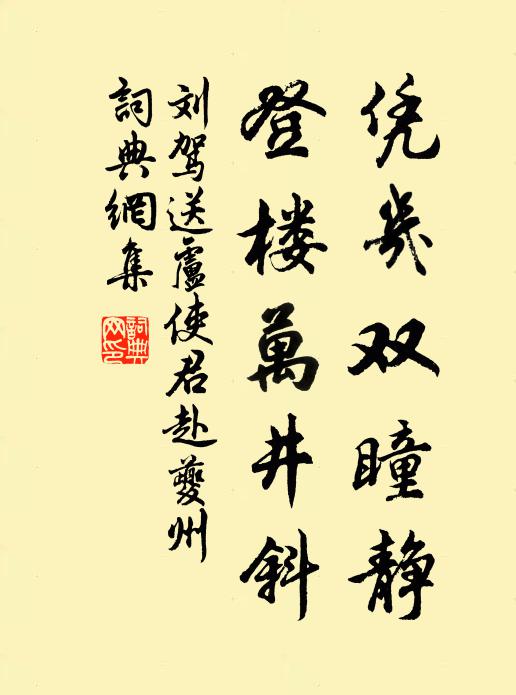 凭几双瞳静
登楼萬井斜
刘驾送盧使君赴夔州
詞典網集
詞典网印